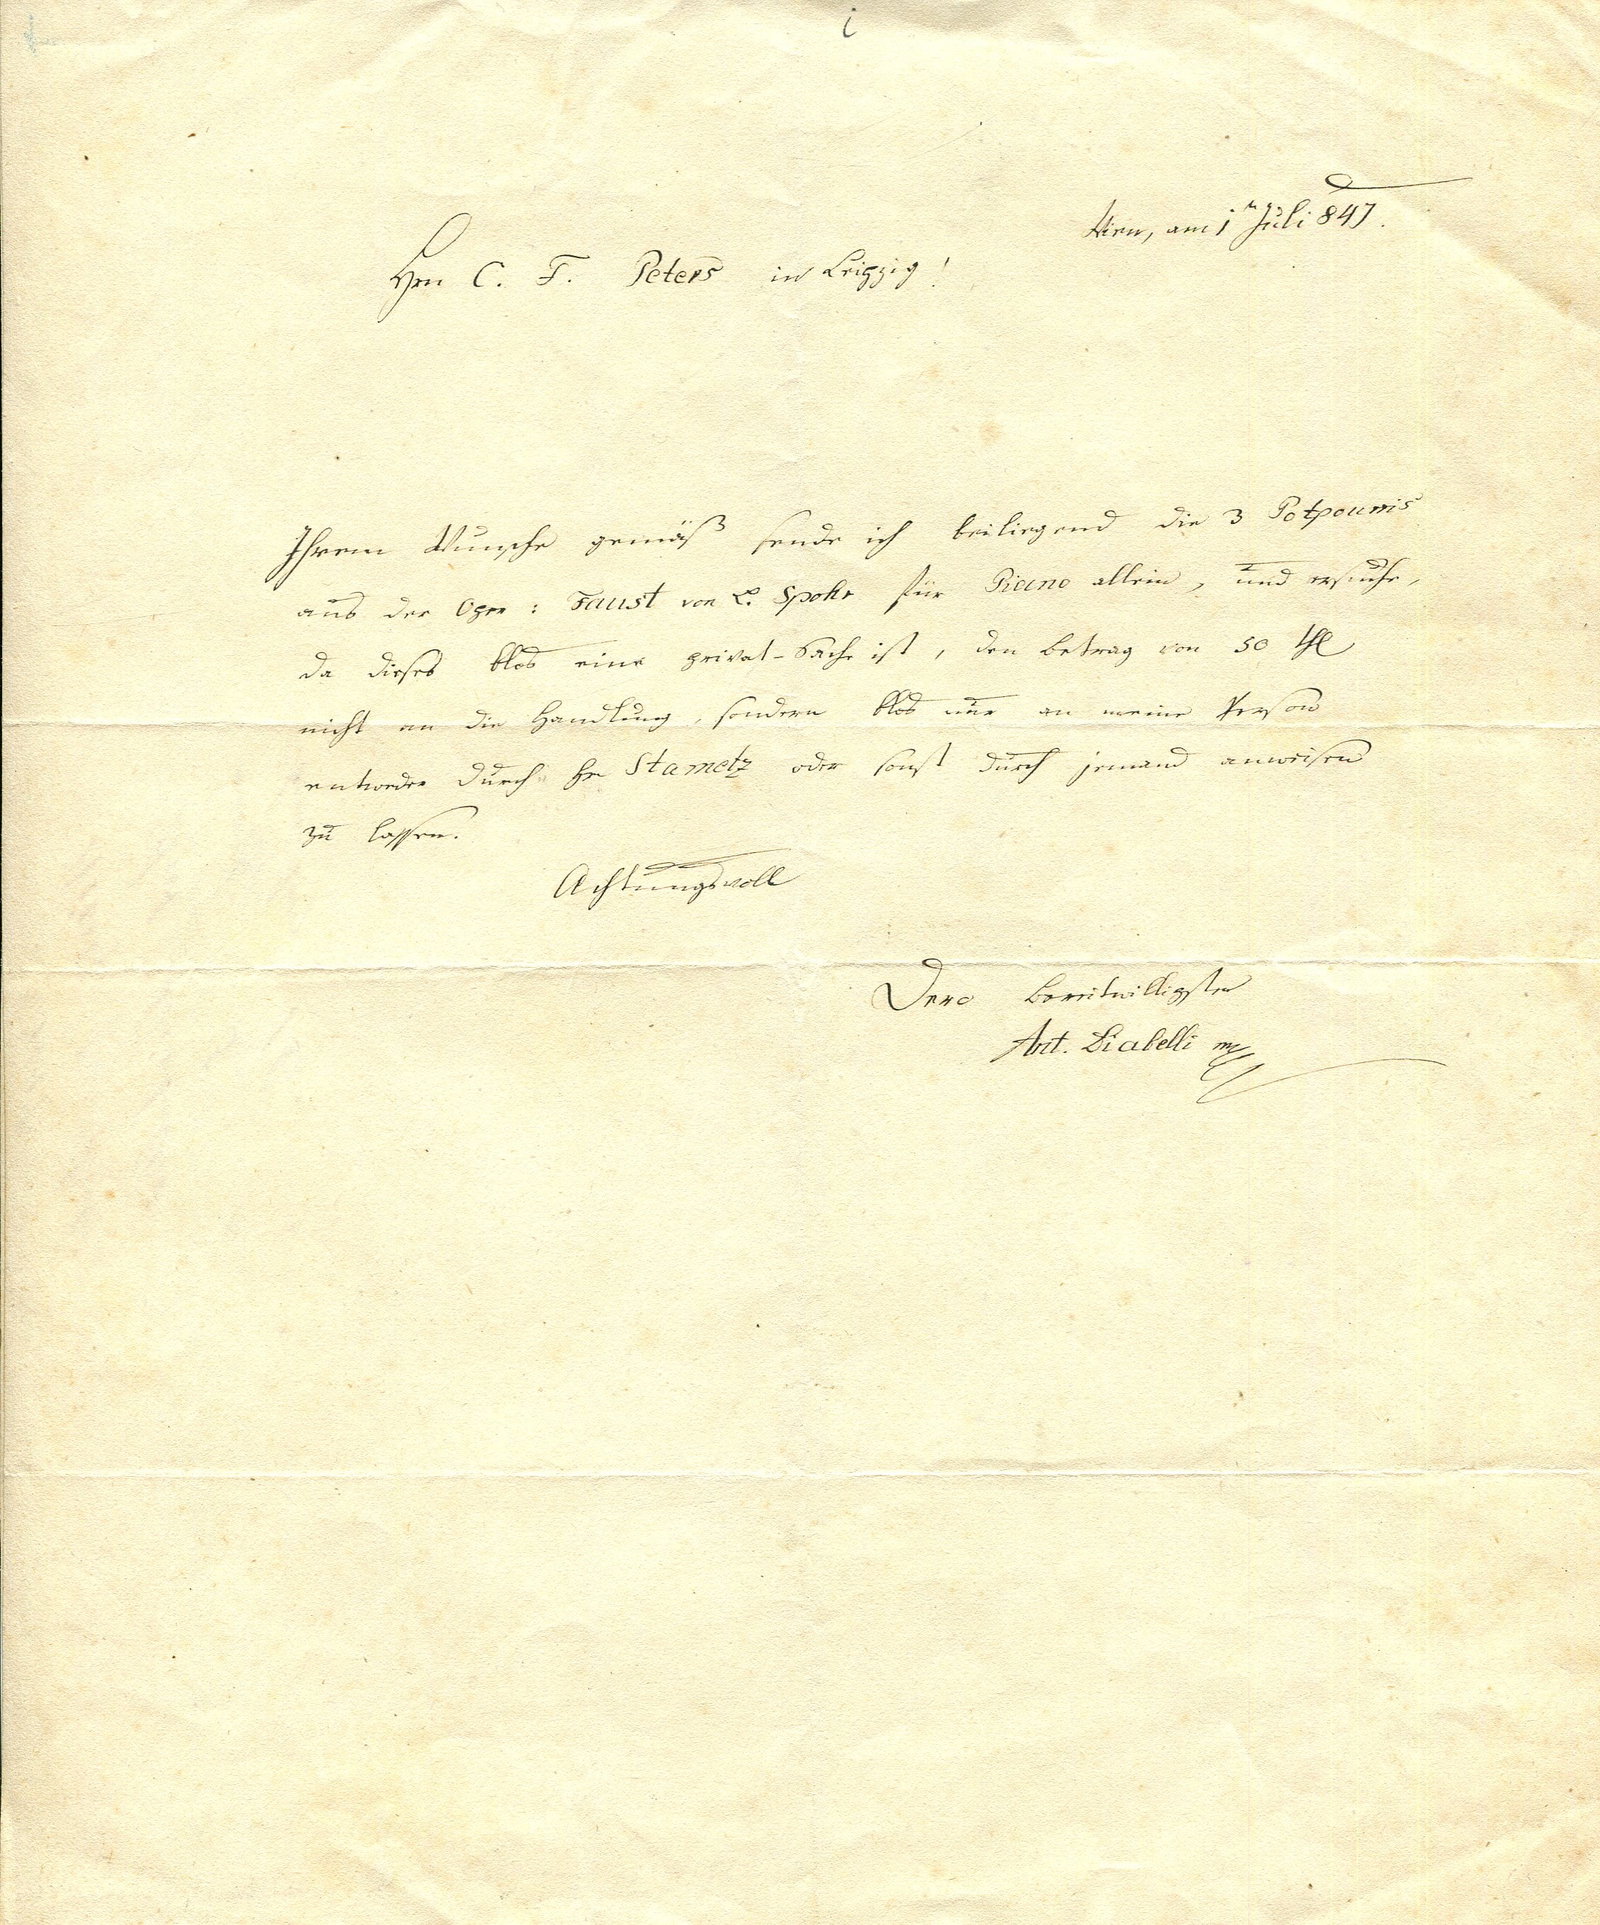 Wien, am 1ten Juli 847.
Hrn C. F. Peters in Leipzig!
Ihrem Wunsche gemäß sende ich beiliegend die 3 Potpourris
aus der Oper: Faust von L. Spohr für Piano allein, und ersuche,
da dieses blos eine privat-Sache ist, den Betrag von 50 thl
nicht an die Handlung, sondern blos nur an meine Person
entweder durch Hr Stametz oder sonst durch jemand anweisen
zu lassen.
Achtungsvoll
Dero bereitwilligster
Ant. Diabelli